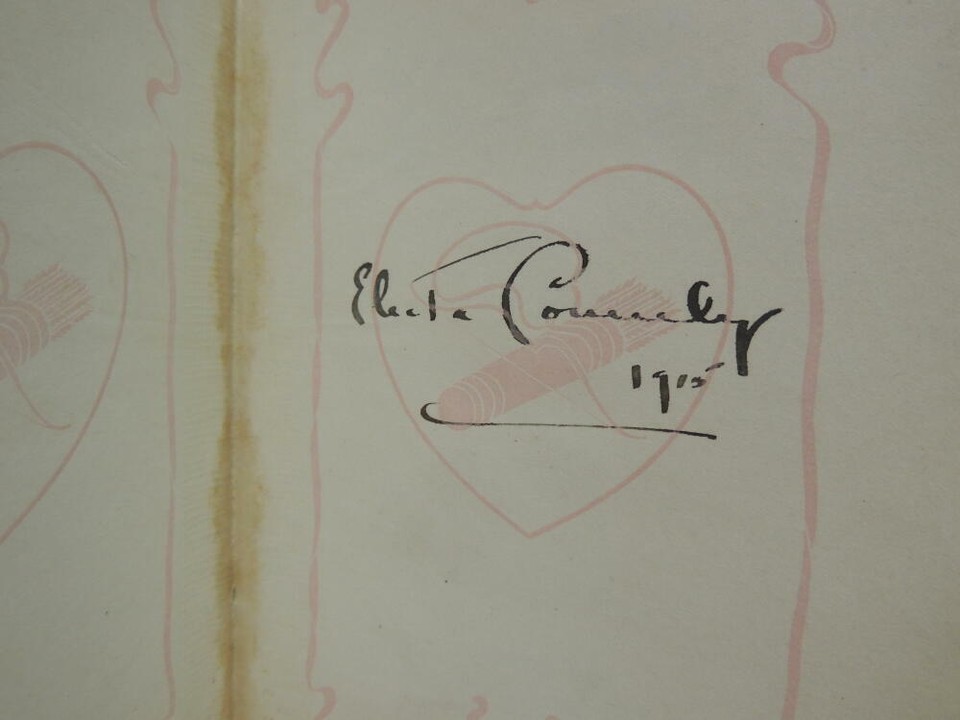 Electa Connelly
1915